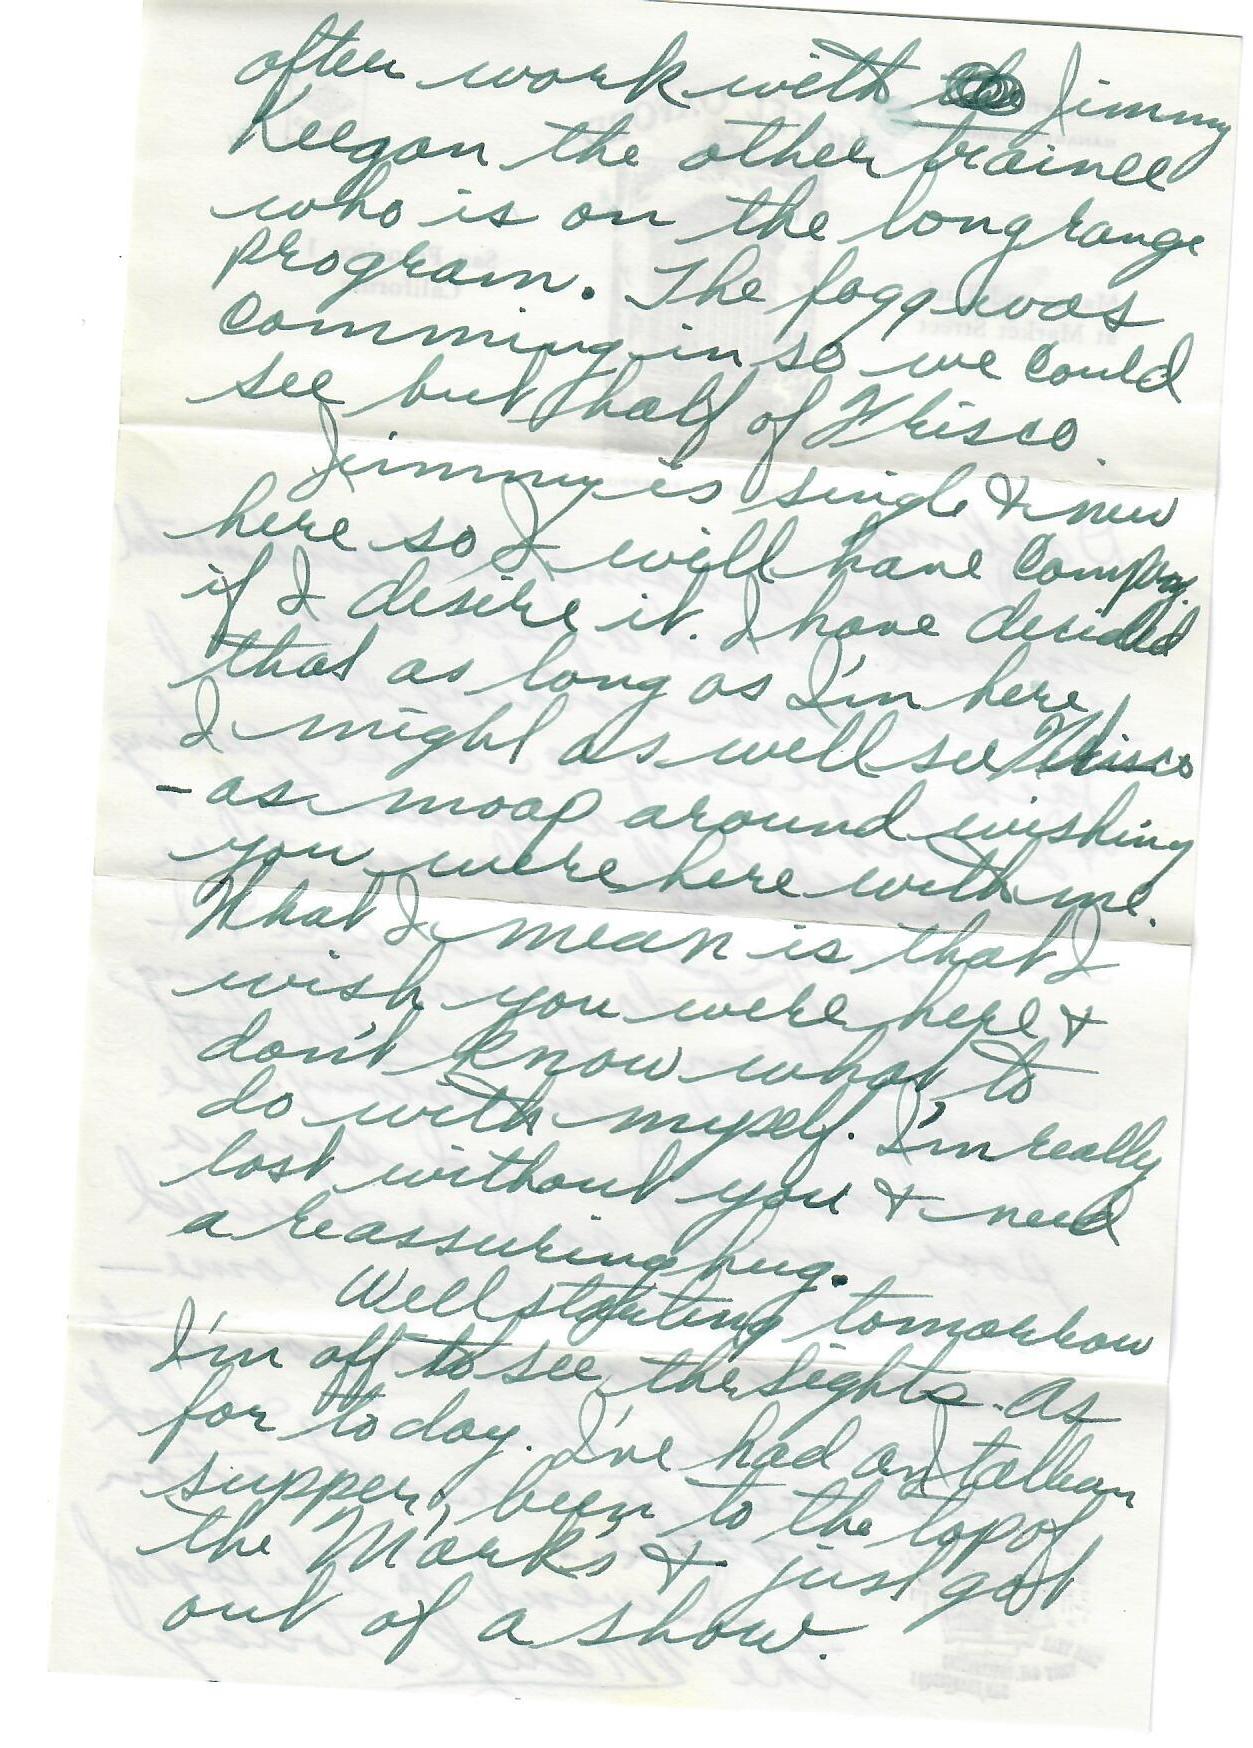 after work with the Jimmy
Keegan the other trainee
who is on the long range
program. The fogg was
comming in so we could
see but half of Frisco.
Jimmy is single & new
here so I will have compny.
if I desire it. I have decided
that as long as I'm here,
I might as well see Frisco
- as moap around wishing
you were here with me.
What I mean is that I
wish you were here &
don't know what to
do with myself. I'm really
lost without you & need
a reassuring hug.
Well starting tomorrow
I'm off to see the sights. As
for today. I've had an Italian
supper, been to the top of
the "Mark" & just got
out of a show.